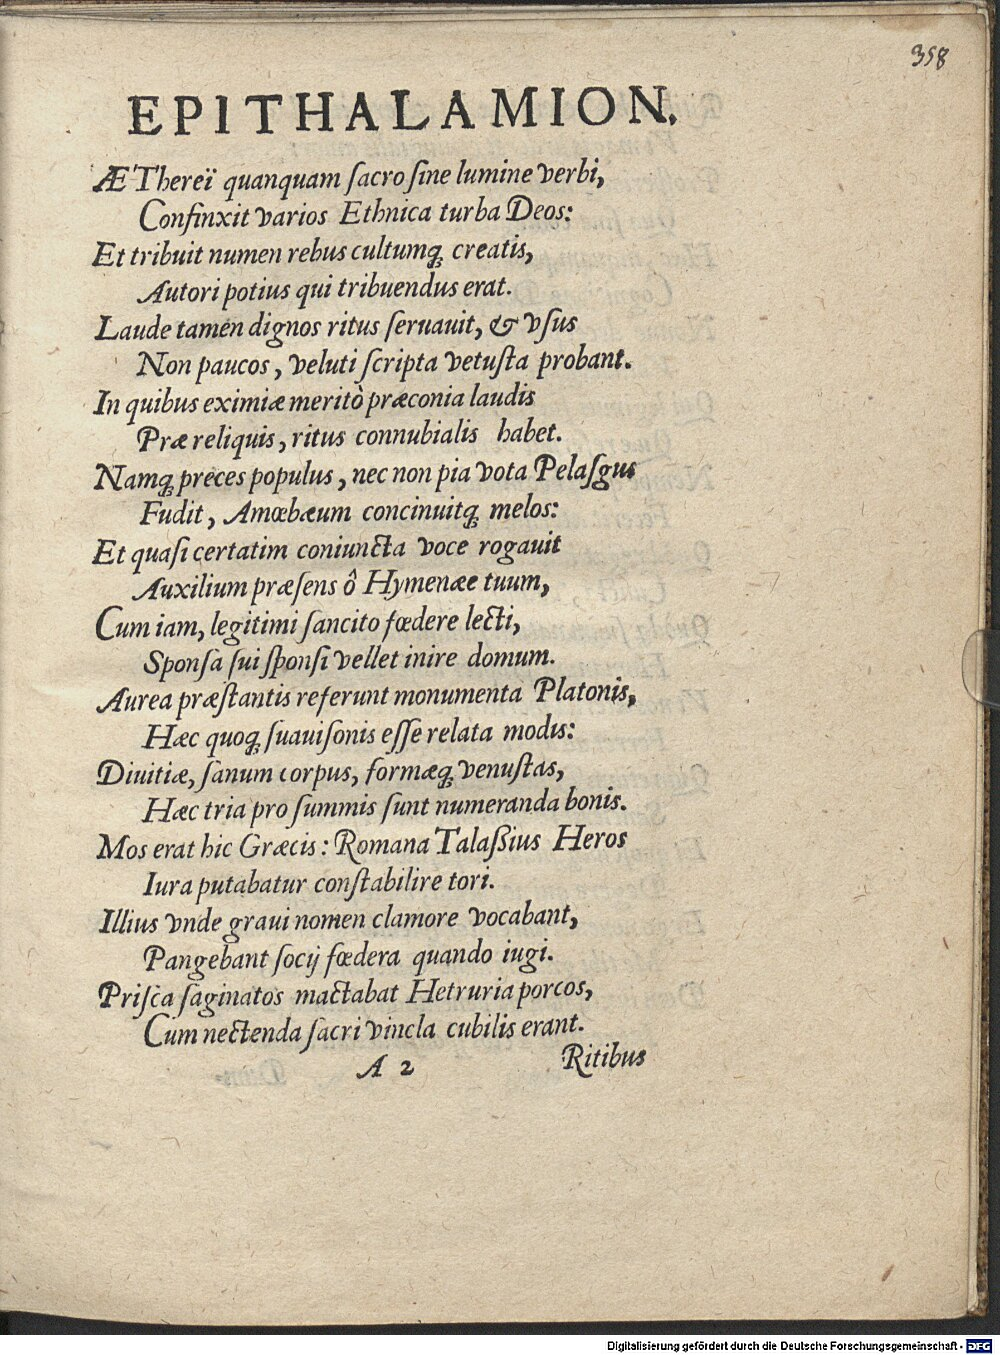 358
EPITHALAMION.
ÆThereï quanquam ſacro ſine lumine verbi,
Confinxit varios Ethnica turba Deos:
Et tribuit numen rebus cultumq́ꝫ creatis,
Autori potius qui tribuendus erat.
Laude tamen dignos ritus ſeruauit, & vſus
Non paucos, veluti ſcripta vetuſta probant.
In quibus eximiæ meritò præconia laudis
Præ reliquis, ritus connubialis habet.
Namq́ꝫ preces populus, nec non pia vota Pelaſgus
Fudit, Amœbæum concinuitq́ꝫ melos:
Et quaſi certatim coniuncta voce rogauit
Auxilium præſens ô Hymenæe tuum,
Cum iam, legitimi ſancito fœdere lecti,
Sponſa ſui ſponſi vellet inire domum.
Aurea præſtantis referunt monumenta Platonis,
Hæc quoq́ꝫ ſuauiſonis eſſe relata modis:
Diuitiæ, ſanum corpus, formæq́ꝫ venuſtas,
Hæc tria pro ſummis ſunt numeranda bonis.
Mos erat hic Græcis: Romana Talaßius Heros
Iura putabatur conſtabilire tori.
Illius vnde graui nomen clamore vocabant,
Pangebant ſocij fœdera quando iugi.
Priſca ſaginatos mactabat Hetruria porcos,
Cum nectenda ſacri vincla cubilis erant.
A 2 Ritibus
Digitalisierung gefördert durch die Deutsche Forschungsgemeinschaft - DFG